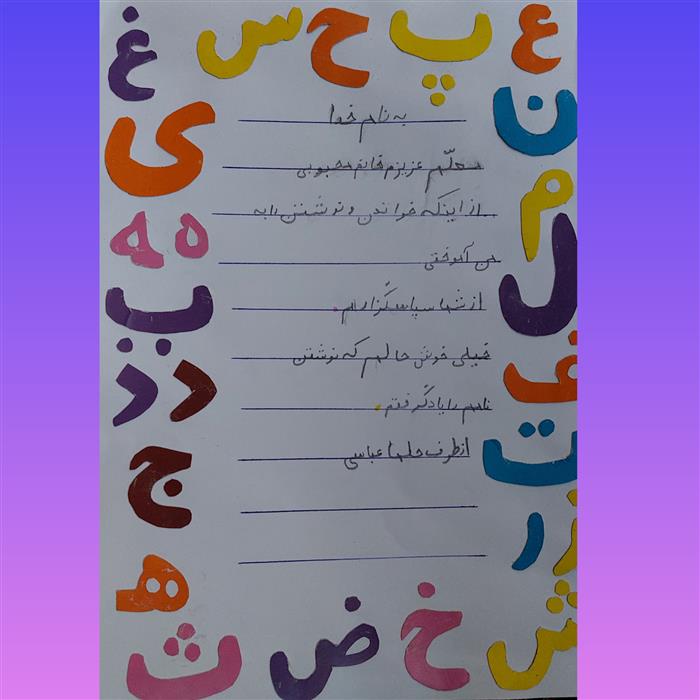 غ س ح پ ع
ن
ی
م
ه ه
ل
ب
ف
ذ د
ت
ج
ر ز
ه
ش
ث ض خ
به نام خدا
معلّم عزیزم خانم محبوبی
از اینکه خواندن و نوشتن را به
من آموختی
از شما سپاسگزارم.
خیلی خوش حالم که نوشتن
نامه را یاد گرفتم.
از طرف حلما عباسی